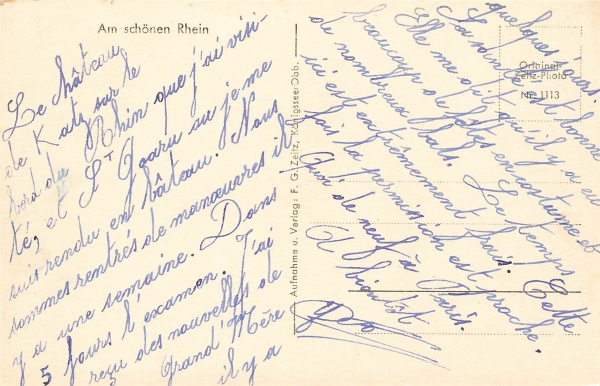 Am schönen Rhein
Le château
de Katz sur le
bord du Rhin que j'ai visi-
té, et St Goar où je me
suis rendu en bâteau. Nous
sommes rentrés de manœuvres il
y a une semaine. Dans
5 jours l'examen. J'ai
reçu des nouvelles de
Grand'Mère
il y a
quelques jours.
Sa santé est bonne
Elle me dit qu'il y a eu
beaucoup de fêtes en costume et
de nombreux bals. Le temps
ici est extrêmement frais. Cette
fois la permission est proche.
Quoi de neuf à Paris.
A bientôt
Original
Zeitz-Photo
Nr. 1113
Aufnahme u. Verlag: F. G. Zeitz, Königssee/Obb.